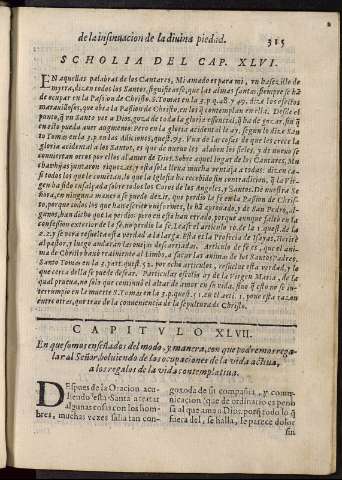 de la insinuacion de la diuina piedad. 315
SCHOLIA DEL CAP. XLVI.
EN aquellas palabras de los Cantares, Mi amado es para mi, vn hazezillo de
myrra, dizen todos los Santos, que las almas santas siempre se ha
de ocupar en la Passion de Christo. S. Tomas en la 3. p. q. 48 y 49. diza los efectos
marauillosos, que obra la Passion de Christo, en los q̃ contemplan en ella. Desde el
punto, q̃ vn Santo vee a Dios, goza de toda la gloria essencial, q̃ ha de gozar, sin q̃
en esto pueda auer augmento: Pero en la gloria accidental le ay, segun lo dize San
to Tomas en la 3. p. en las adiciones, Vna de las cosas de que les crece la
gloria accidental a los Santos, es que de nueuo los alaben los fieles, y de nueuo se
conuiertan otros por ellos al amor de Dios. Sobre aquel lugar de los Cantares, Mu
chas hijas juntaron riquezas, y esta sola lleua mucha ventaja a todas: dizen ca-
si todos los que le comētan, lo que la Iglesia ha recebido sin contradicion, q̃ la Vir
gen ha sido ensalçada sobre todos los Coros de los Angeles, y Santos. De nuestra Se
ñora, en ninguna manera se puede dezir, que perdio la fe en la Passion de Chris-
to, porque todos los que han escrito vniformes, le hã aprobado, y de San Pedro, al-
gunos, han dicho que la perdio: pero en esto han errado, porque aunque faltò en la
confession exterior de la fe, no perdio la fe. Lease el articulo 10. de la 1. quest. de la
2. 2. y se vera resuelta esta verdad a la larga. Esta es la Profecia de Isayas, herirè
al pastor, y luego andaran las ouejas descarriadas. Articulo de fe es, que el ani-
ma de Christo baxò realmente al Limbo, a sacar las animas de los Santos Padres.
Santo Tomas en la 3. part. quest. 52. por ocho articulos, resuelue esta verdad, y lo
que cerca della se puede dessear. Particular efeto de la Virgen Maria, de la
qual prueua, no solo que continuò el altar de amor en su vida, sino q̃ esto no se in-
terrumpio en la muerte. S. Tomas en la 3. p. quest. 51. en el arti. 1. pone esta razon
entre otras, que trae de la conueniencia de la sepultura de Christo.
CAPITVLO XLVII.
En que somos enseñados del modo, y manera, con que podremos rega-
lar al Señor, boluiendo de las ocupaciones de la vida actiua,
a los regalos de la vida contemplatiua.
DEspues de la Oracion acu-
diendo esta Santa a tratar
algunas cosas con los hom-
bres, muchas vezes salia tan con-
gozoda de su compañia, y comu-
nicacion (que de ordinario es peno
sa al que ama a Dios, porq̃ todo lo q̃
fuera del, se halla, le parece dolor
sin